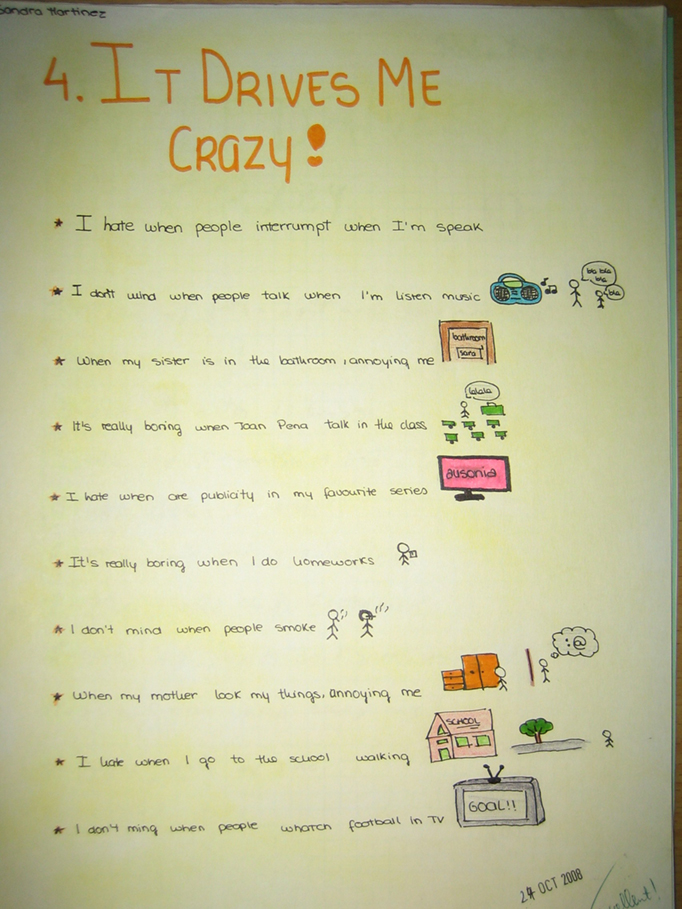 Sandra Martinez
4. It Drives Me
Crazy!
* I hate when people interrumpt when I'm speak
* I don't wind when people talk when I'm listen music
bla bla
bla
bla
* When my sister is in the bathroom, annoying me
bathroom
sara
lalala
* It's really boring when Joan Pena talk in the class
ausonia
* I hate when are publicity in my favourite series
* It's really boring when I do homeworks
* I don't mind when people smoke
@
* When my mother look my things, annoying me
SCHOOL
* I hate when I go to the school walking
GOAL!!
* I don't ming when people whatch football in TV
24 OCT 2008